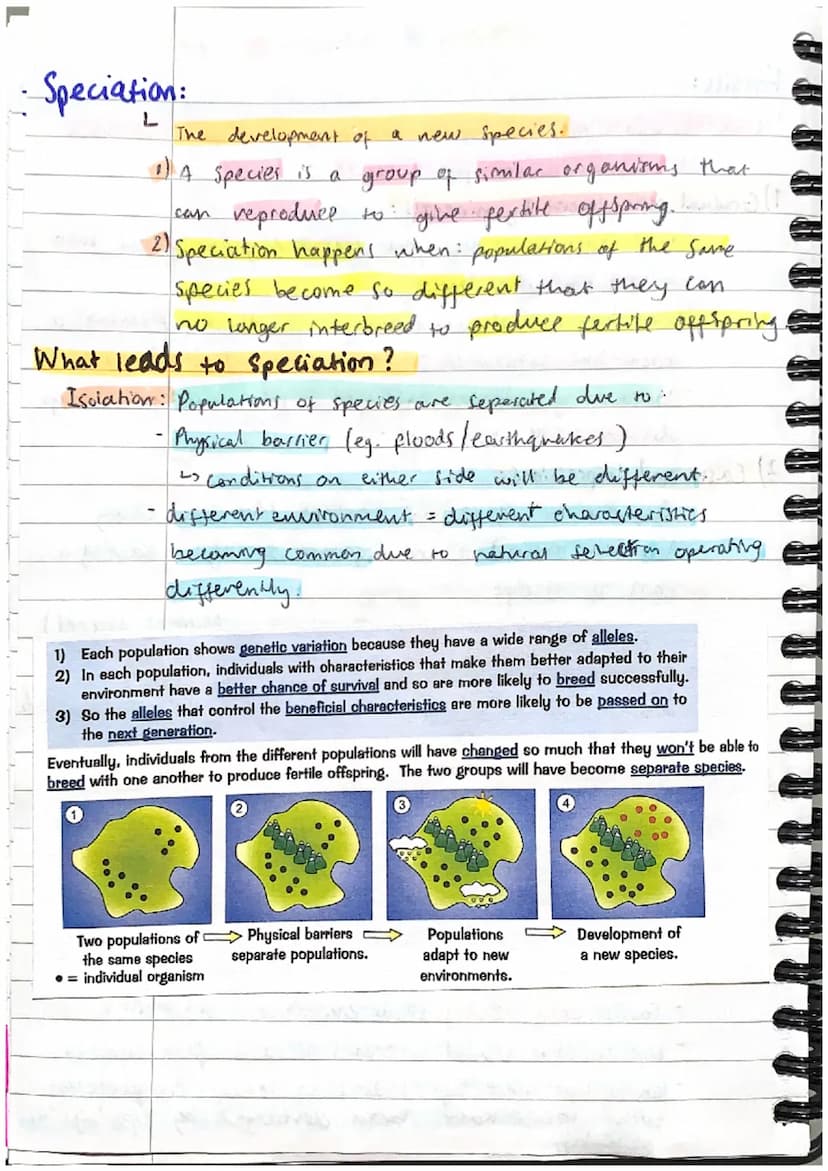 Speciation:
The development of a new species.
1) A species is a group of similar organisms that
can reproduce to give fertile offspring.
2) Speciation happens when: populations of the same
species become so different that they can
no longer interbreed to produce fertile offspring
What leads to speciation?
Isolation: Populations of species are seperated due to:
- Physical barrier (eg. floods/earthquakes)
↳ conditions on either side will be different.
- different environment = different characteristics
becoming common due to natural selection operating
differently.
1) Each population shows genetic variation because they have a wide range of alleles.
2) In each population, individuals with characteristics that make them better adapted to their
environment have a better chance of survival and so are more likely to breed successfully.
3) So the alleles that control the beneficial characteristics are more likely to be passed on to
the next generation.
Eventually, individuals from the different populations will have changed so much that they won't be able to
breed with one another to produce fertile offspring. The two groups will have become separate species.
1
2
3
4
Two populations of
the same species
• = individual organism
Physical barriers
separate populations.
Populations
adapt to new
environments.
Development of
a new species.